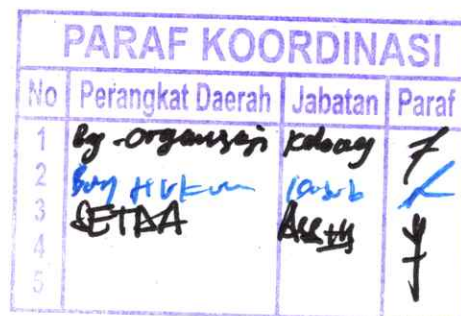 PARAF KOORDINASI
No Perangkat Daerah Jabatan Paraf
1 Bg. Organisasi Kabag
2 Bag Hukum
3 SETDA Ass III
4
5